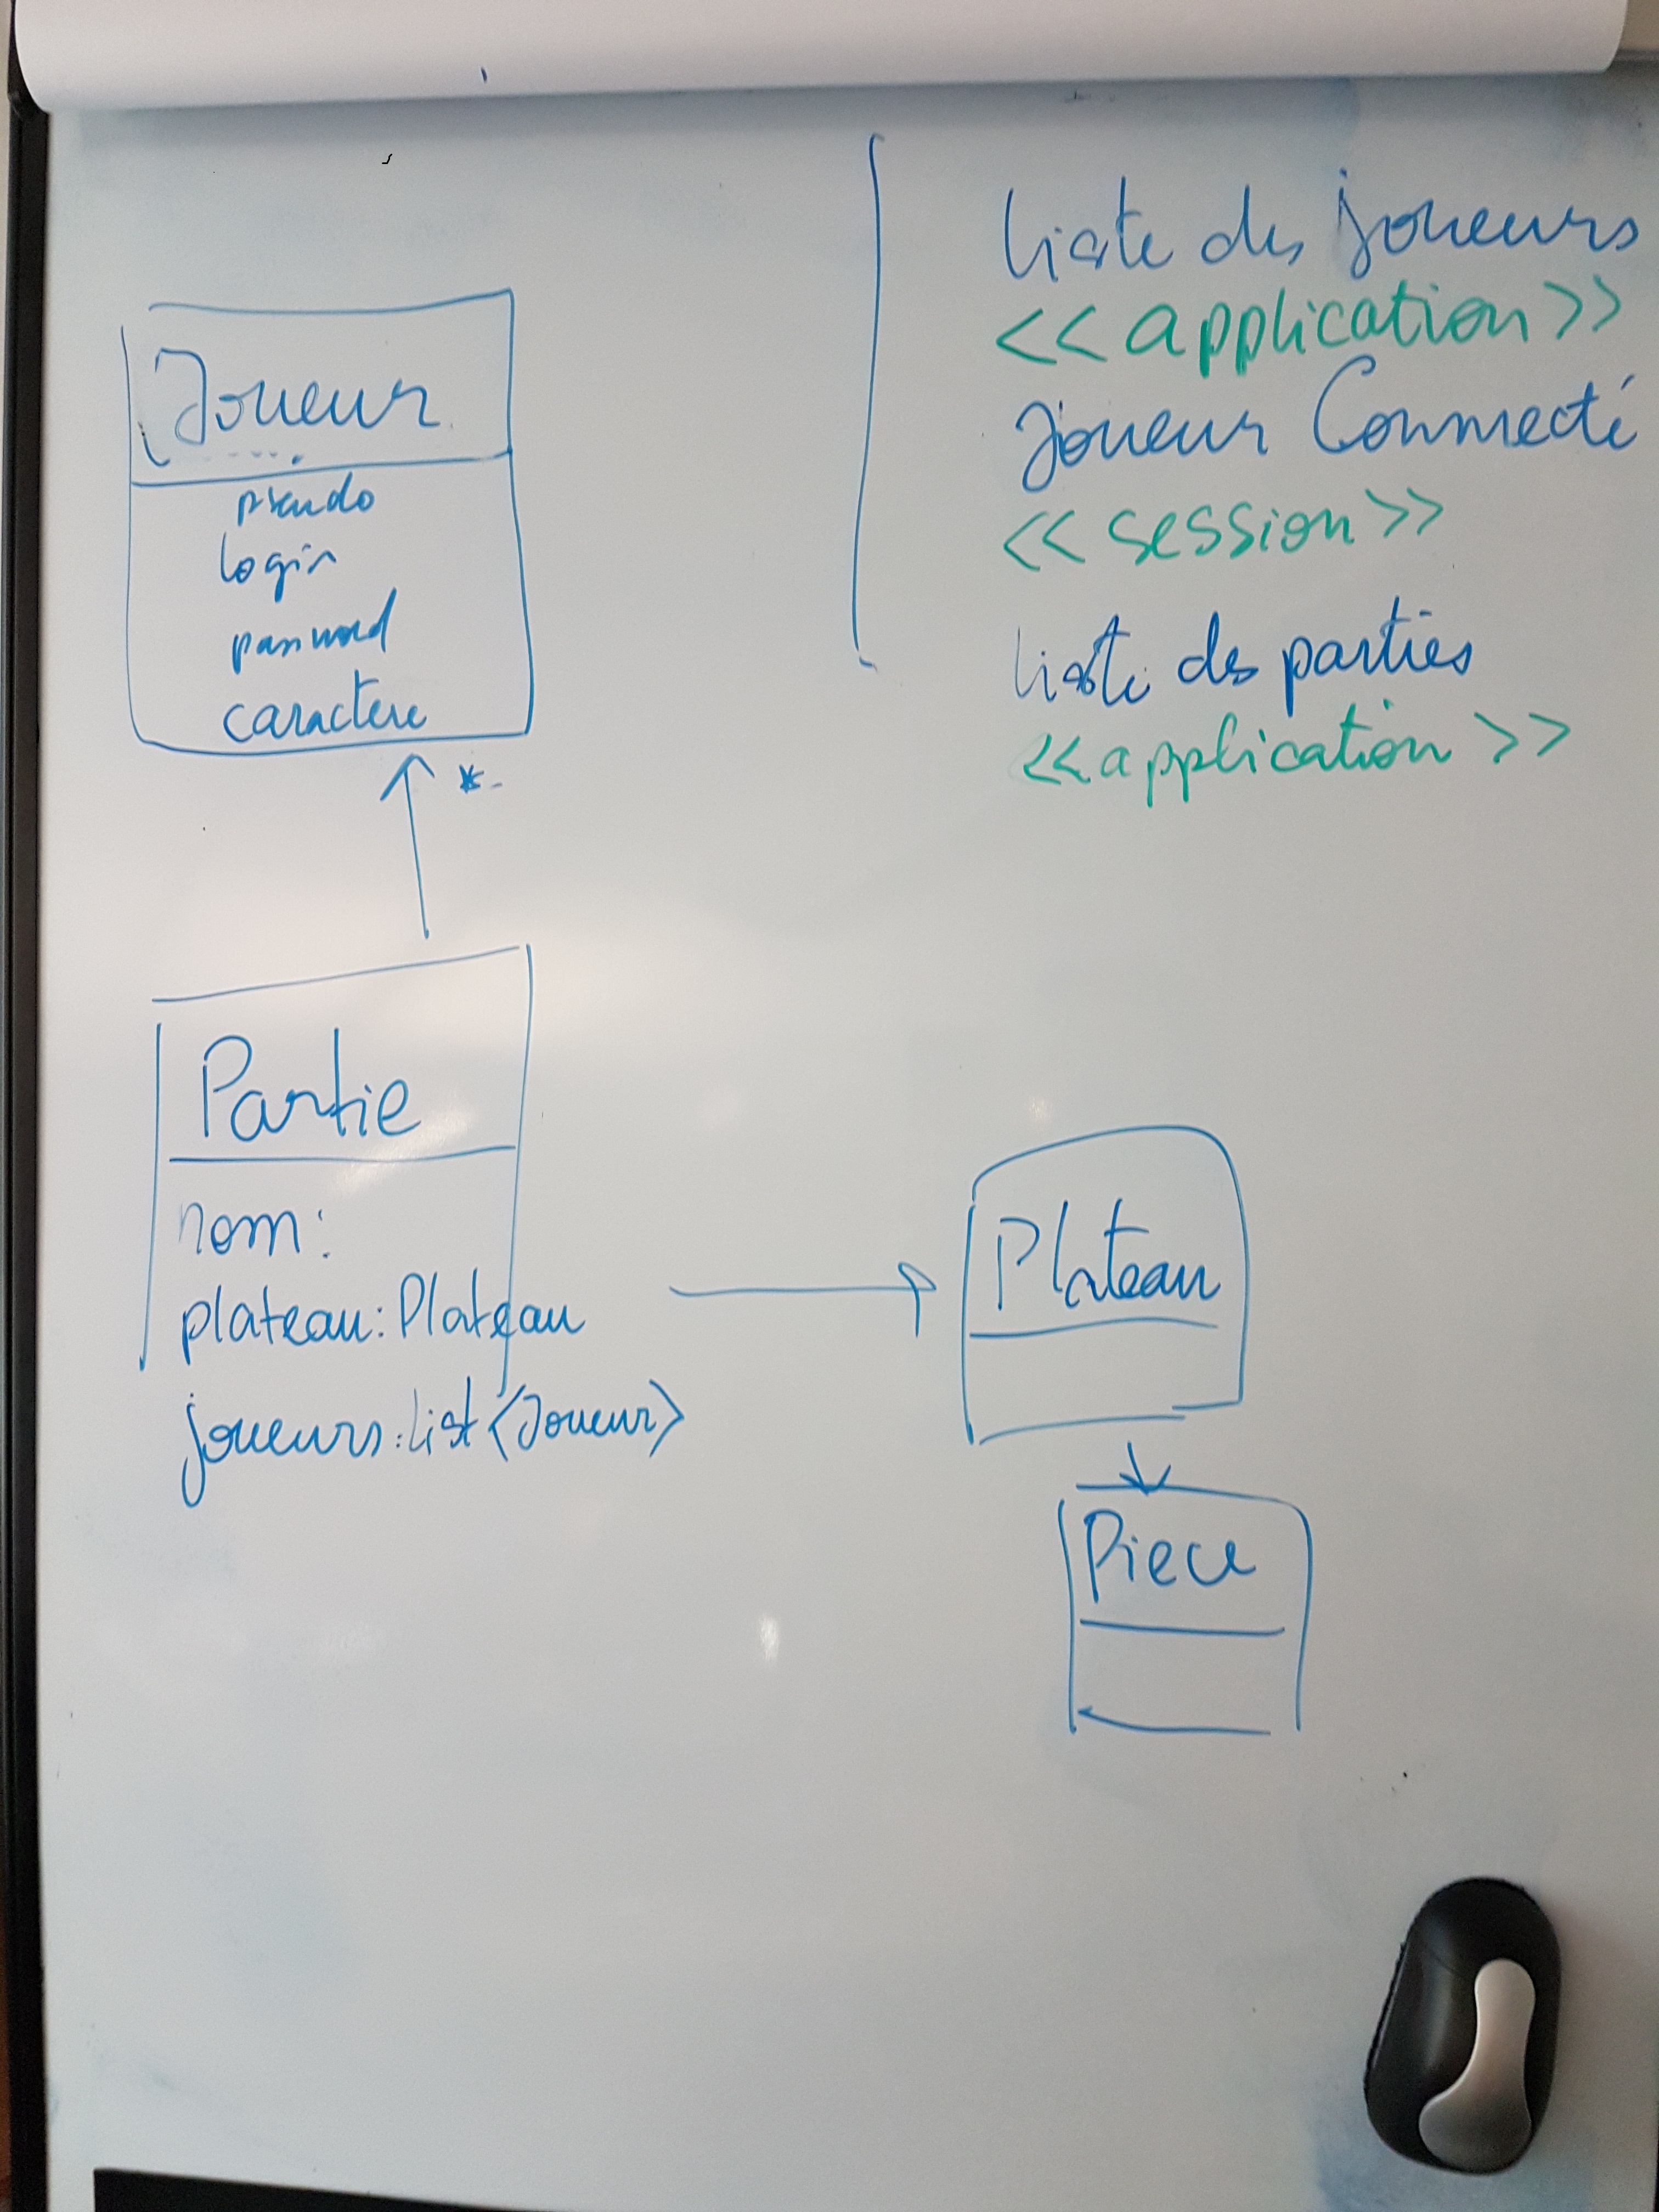 Joueur
pseudo
login
password
caractere
*
Partie
nom:
plateau: Plateau
joueurs: list <Joueur>
liste des joueurs
<< application >>
Joueur Connecté
<< session >>
liste des parties
<< application >>
Plateau
Piece